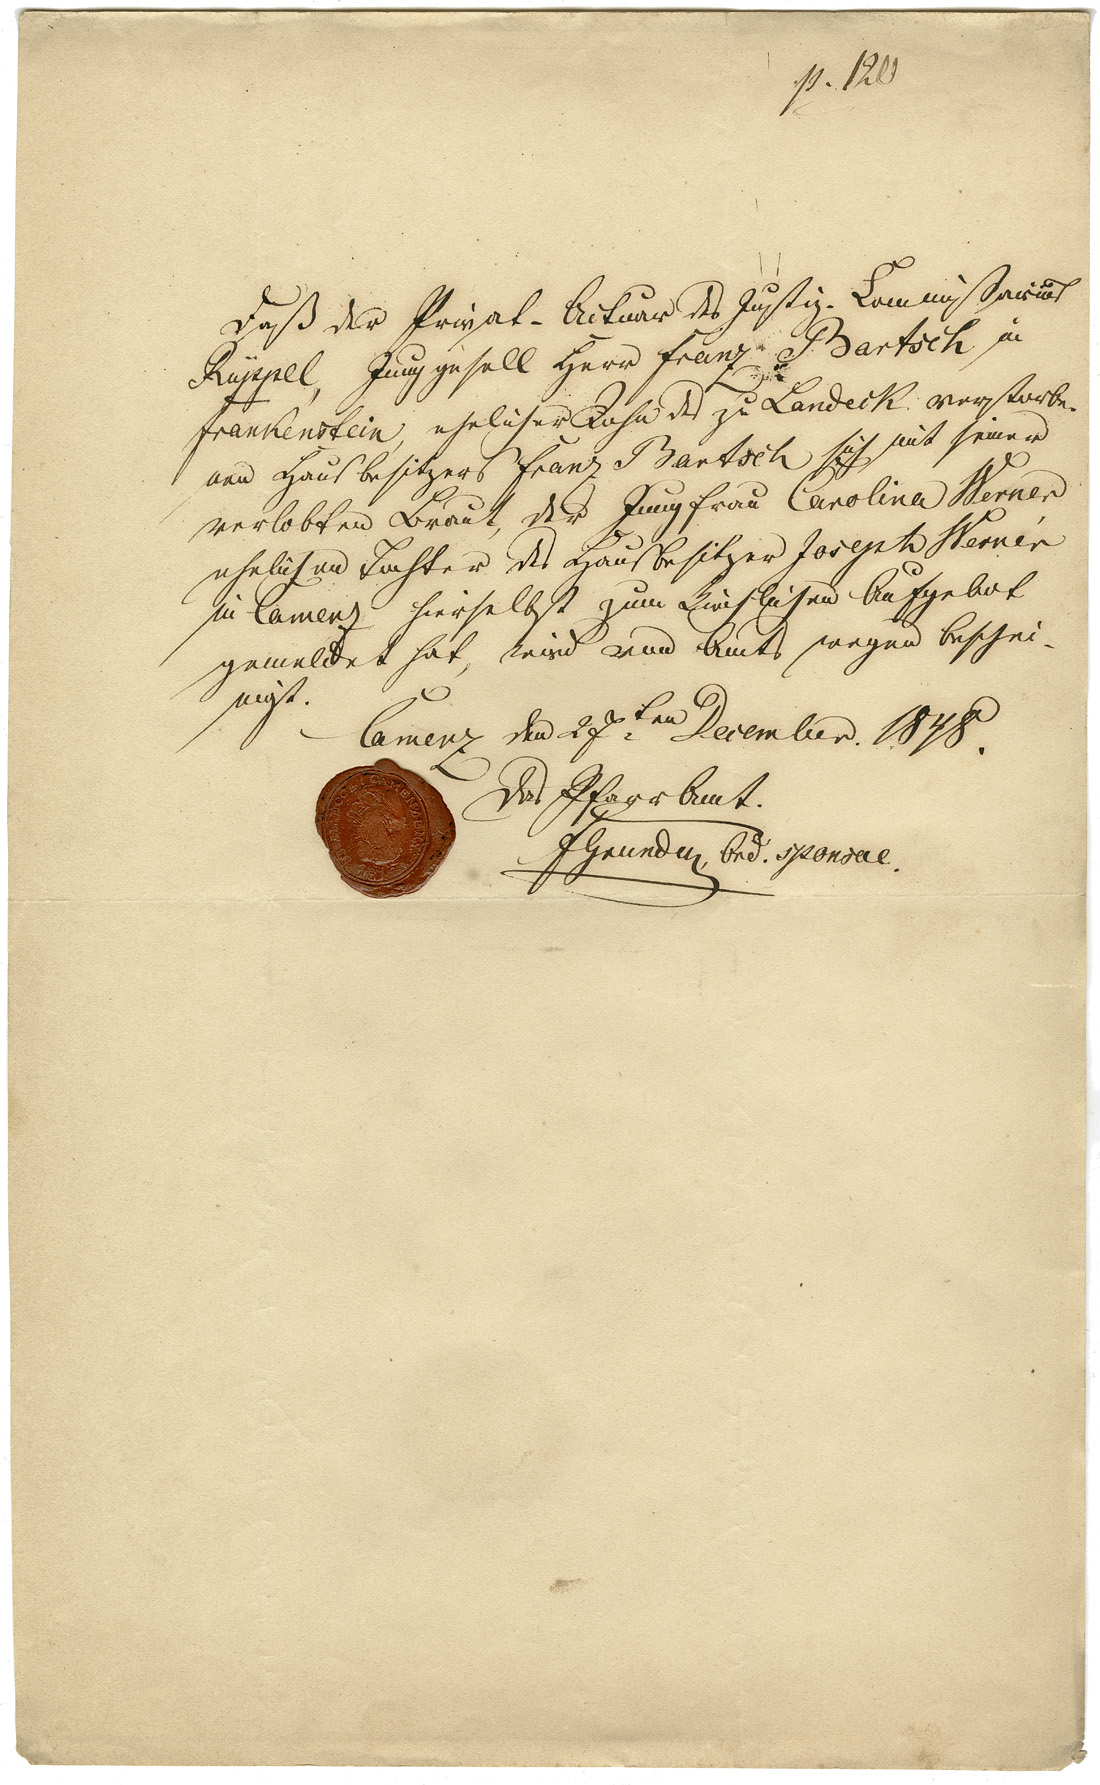 p. 120
Daß der Privat-Actuar des Justiz-Commissarius
Rüppel, Junggesell Herr Franz Bartsch in
Frankenstein, ehelicher Sohn des zu Landeck verstorbe-
nen Hausbesitzers Franz Bartsch sich mit seiner
verlobten Braut, der Jungfrau Carolina Werner
ehelichen Tochter des Hausbesitzer Joseph Werner
in Camenz hierselbst zum kirchlichen Aufgebot
gemeldet hat, wird von Amts wegen beschei-
nigt.
Camenz den 27ten December. 1848.
Das Pfarr Amt.
sponsae.
CAMENZ